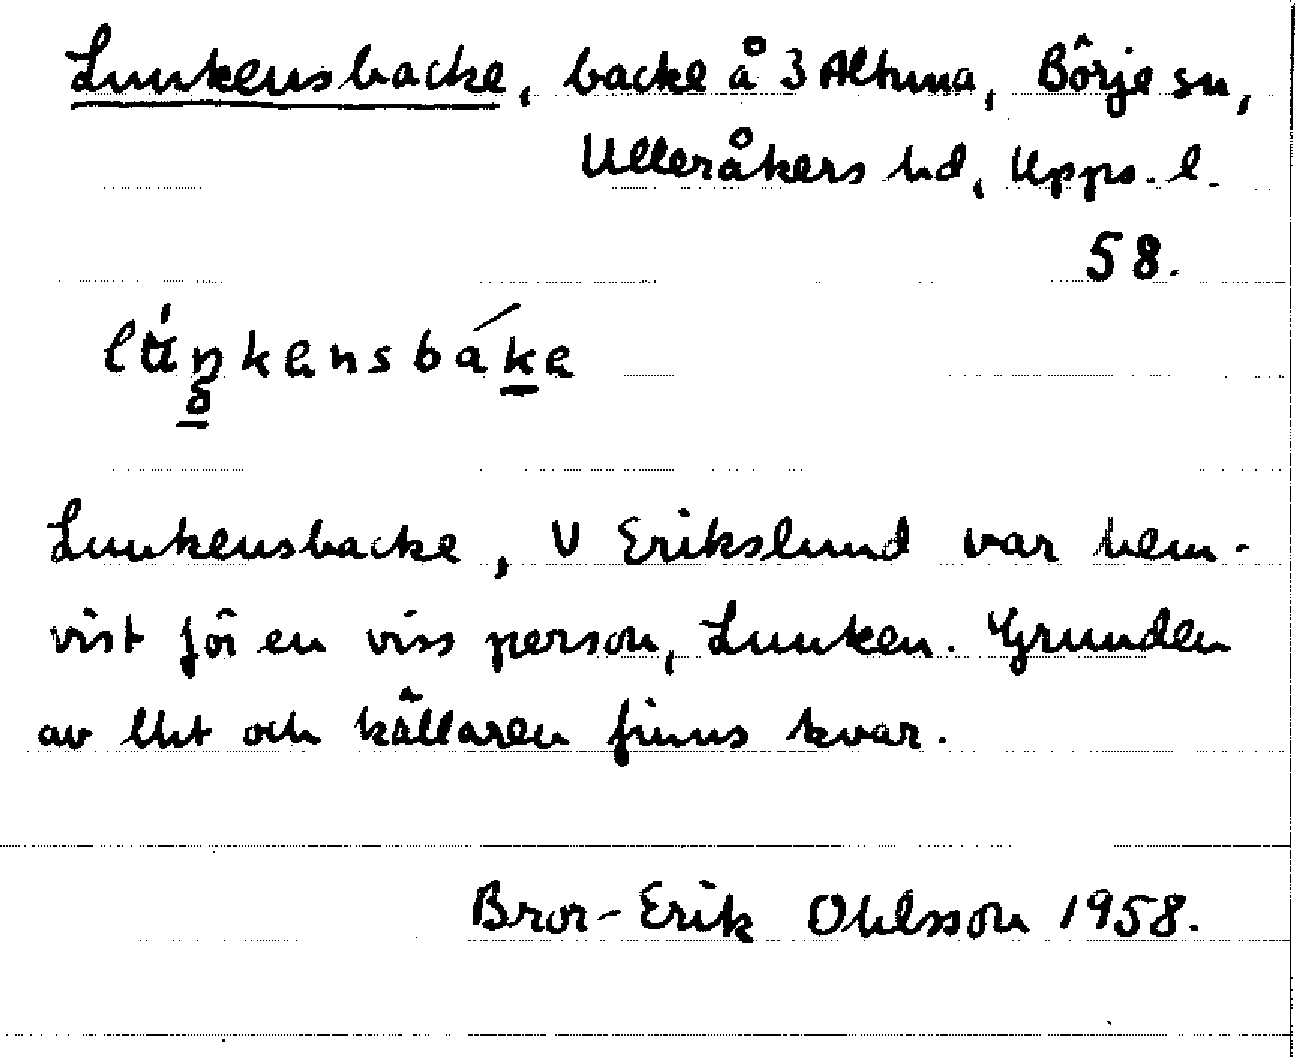 Lunkensbacke, backe å 3 Altuna, Börje sn,
Ulleråkers hd, Upps. l.
58.
Lunkensbacke, V Erikslund var hem-
vist för en viss person, Lunken. Grunden
av lht och källaren finns kvar.
Bror-Erik Ohlsson 1958.